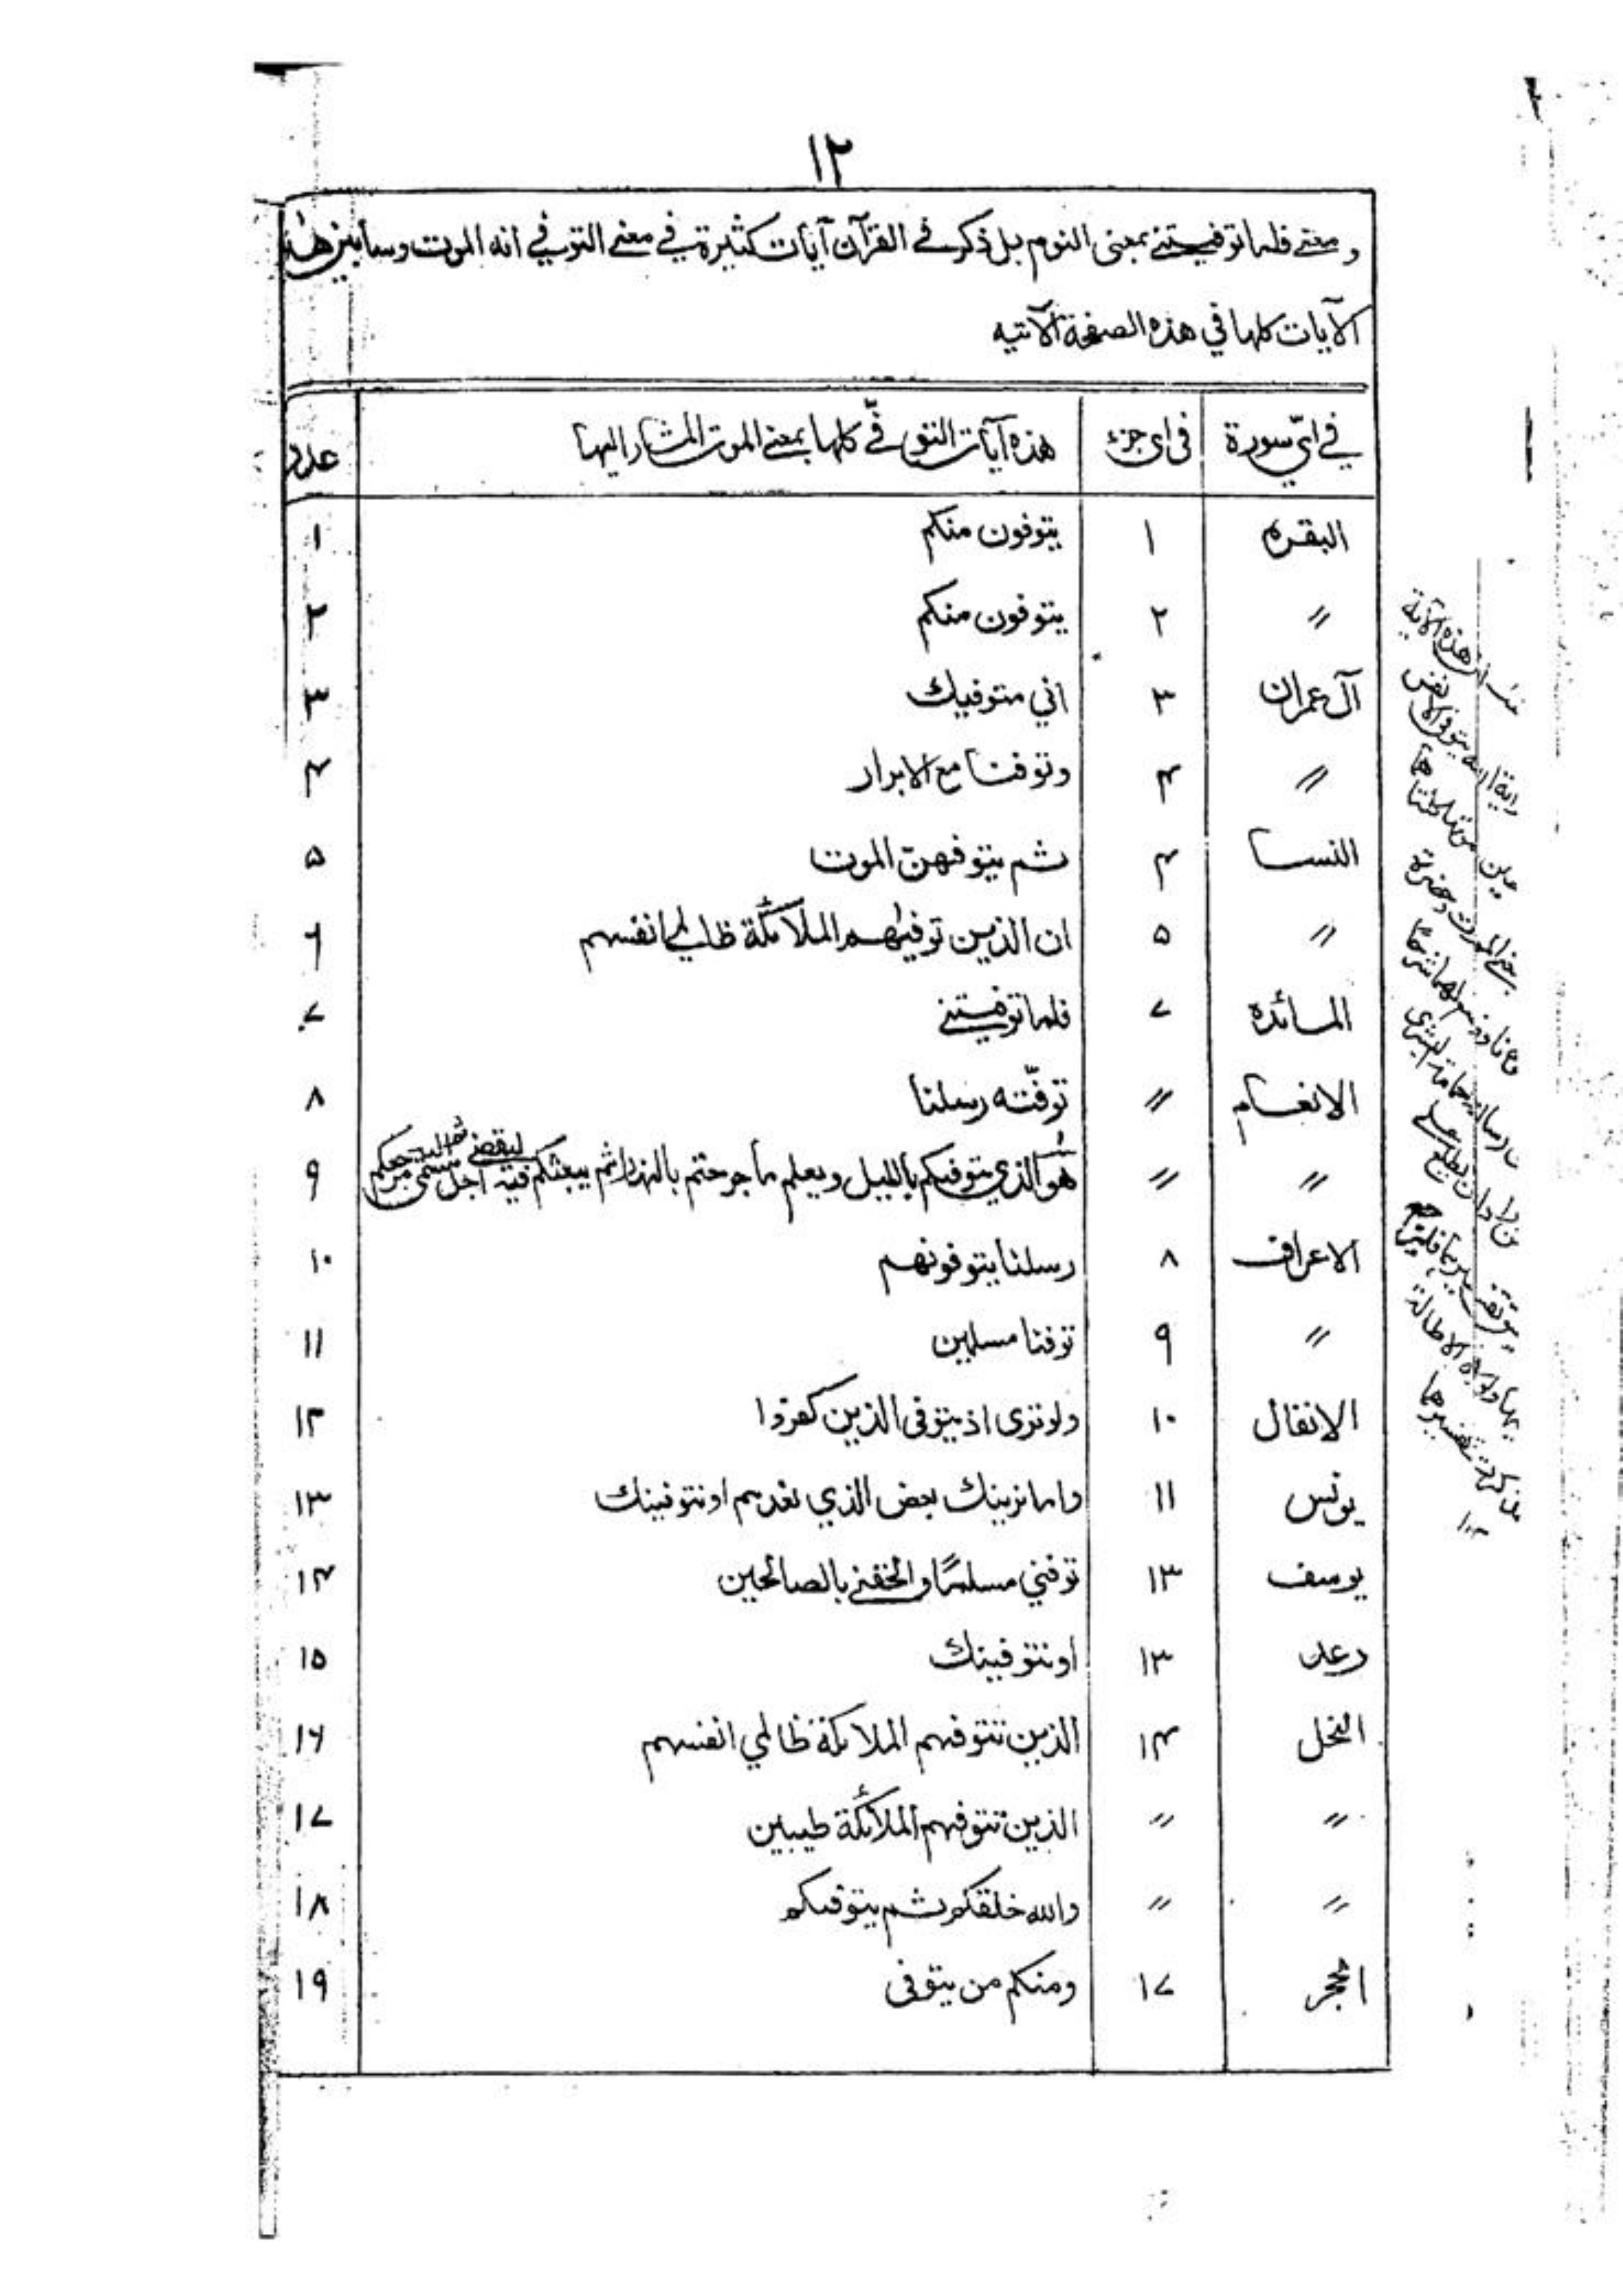 ١٢
ومعنى فلما توفيتني بمعنى النوم بل ذكر في القرآن آيات كثيرة في معنى التوفي انه الموت وسأبين هذه
الآيات كلها في هذه الصفحة الآتيه
في ايّ سورة | في اي جزء | هذه آيات التوفّي كلها بمعنى الموت المشار اليها | عدد
البقره | ١ | يتوفون منكم | ١
〃 | ٢ | يتوفون منكم | ٢
آل عمران | ٣ | اني متوفيك | ٣
〃 | ۴ | وتوفنا مع الابرار | ۴
النسا | ۴ | ثم يتوفهنّ الموت | ۵
〃 | ۵ | ان الذين توفيٰهم الملائكة ظالمي انفسهم | ۶
المائده | ۷ | فلما توفيتني | ۷
الانعام | 〃 | توفّته رسلنا | ٨
〃 | 〃 | هو الذي يتوفيكم بالليل ويعلم ما جرحتم بالنهار ثم يبعثكم فيه ليقضى اجل مسمى ثم اليه مرجعكم | ٩
الاعراف | ٨ | رسلنا يتوفونهم | ١٠
〃 | ٩ | توفنا مسلمين | ١١
الانفال | ١٠ | ولو ترى اذ يتوفى الذين كفروا | ١٢
يونس | ١١ | واما نرينك بعض الذي نعدهم او نتوفينك | ١٣
يوسف | ١٣ | توفني مسلمًا والحقني بالصالحين | ١۴
رعد | ١٣ | او نتوفينك | ١۵
النحل | ١۴ | الذين تتوفهم الملائكة ظالمي انفسهم | ١۶
〃 | 〃 | الذين تتوفهم الملائكة طيبين | ١۷
〃 | 〃 | والله خلقكم ثم يتوفىكم | ١٨
الحجر | ١۷ | ومنكم من يتوفى | ١٩
هذه الآية
يتوفى الانفس
حين موتها
الاطالة
تفسيرها